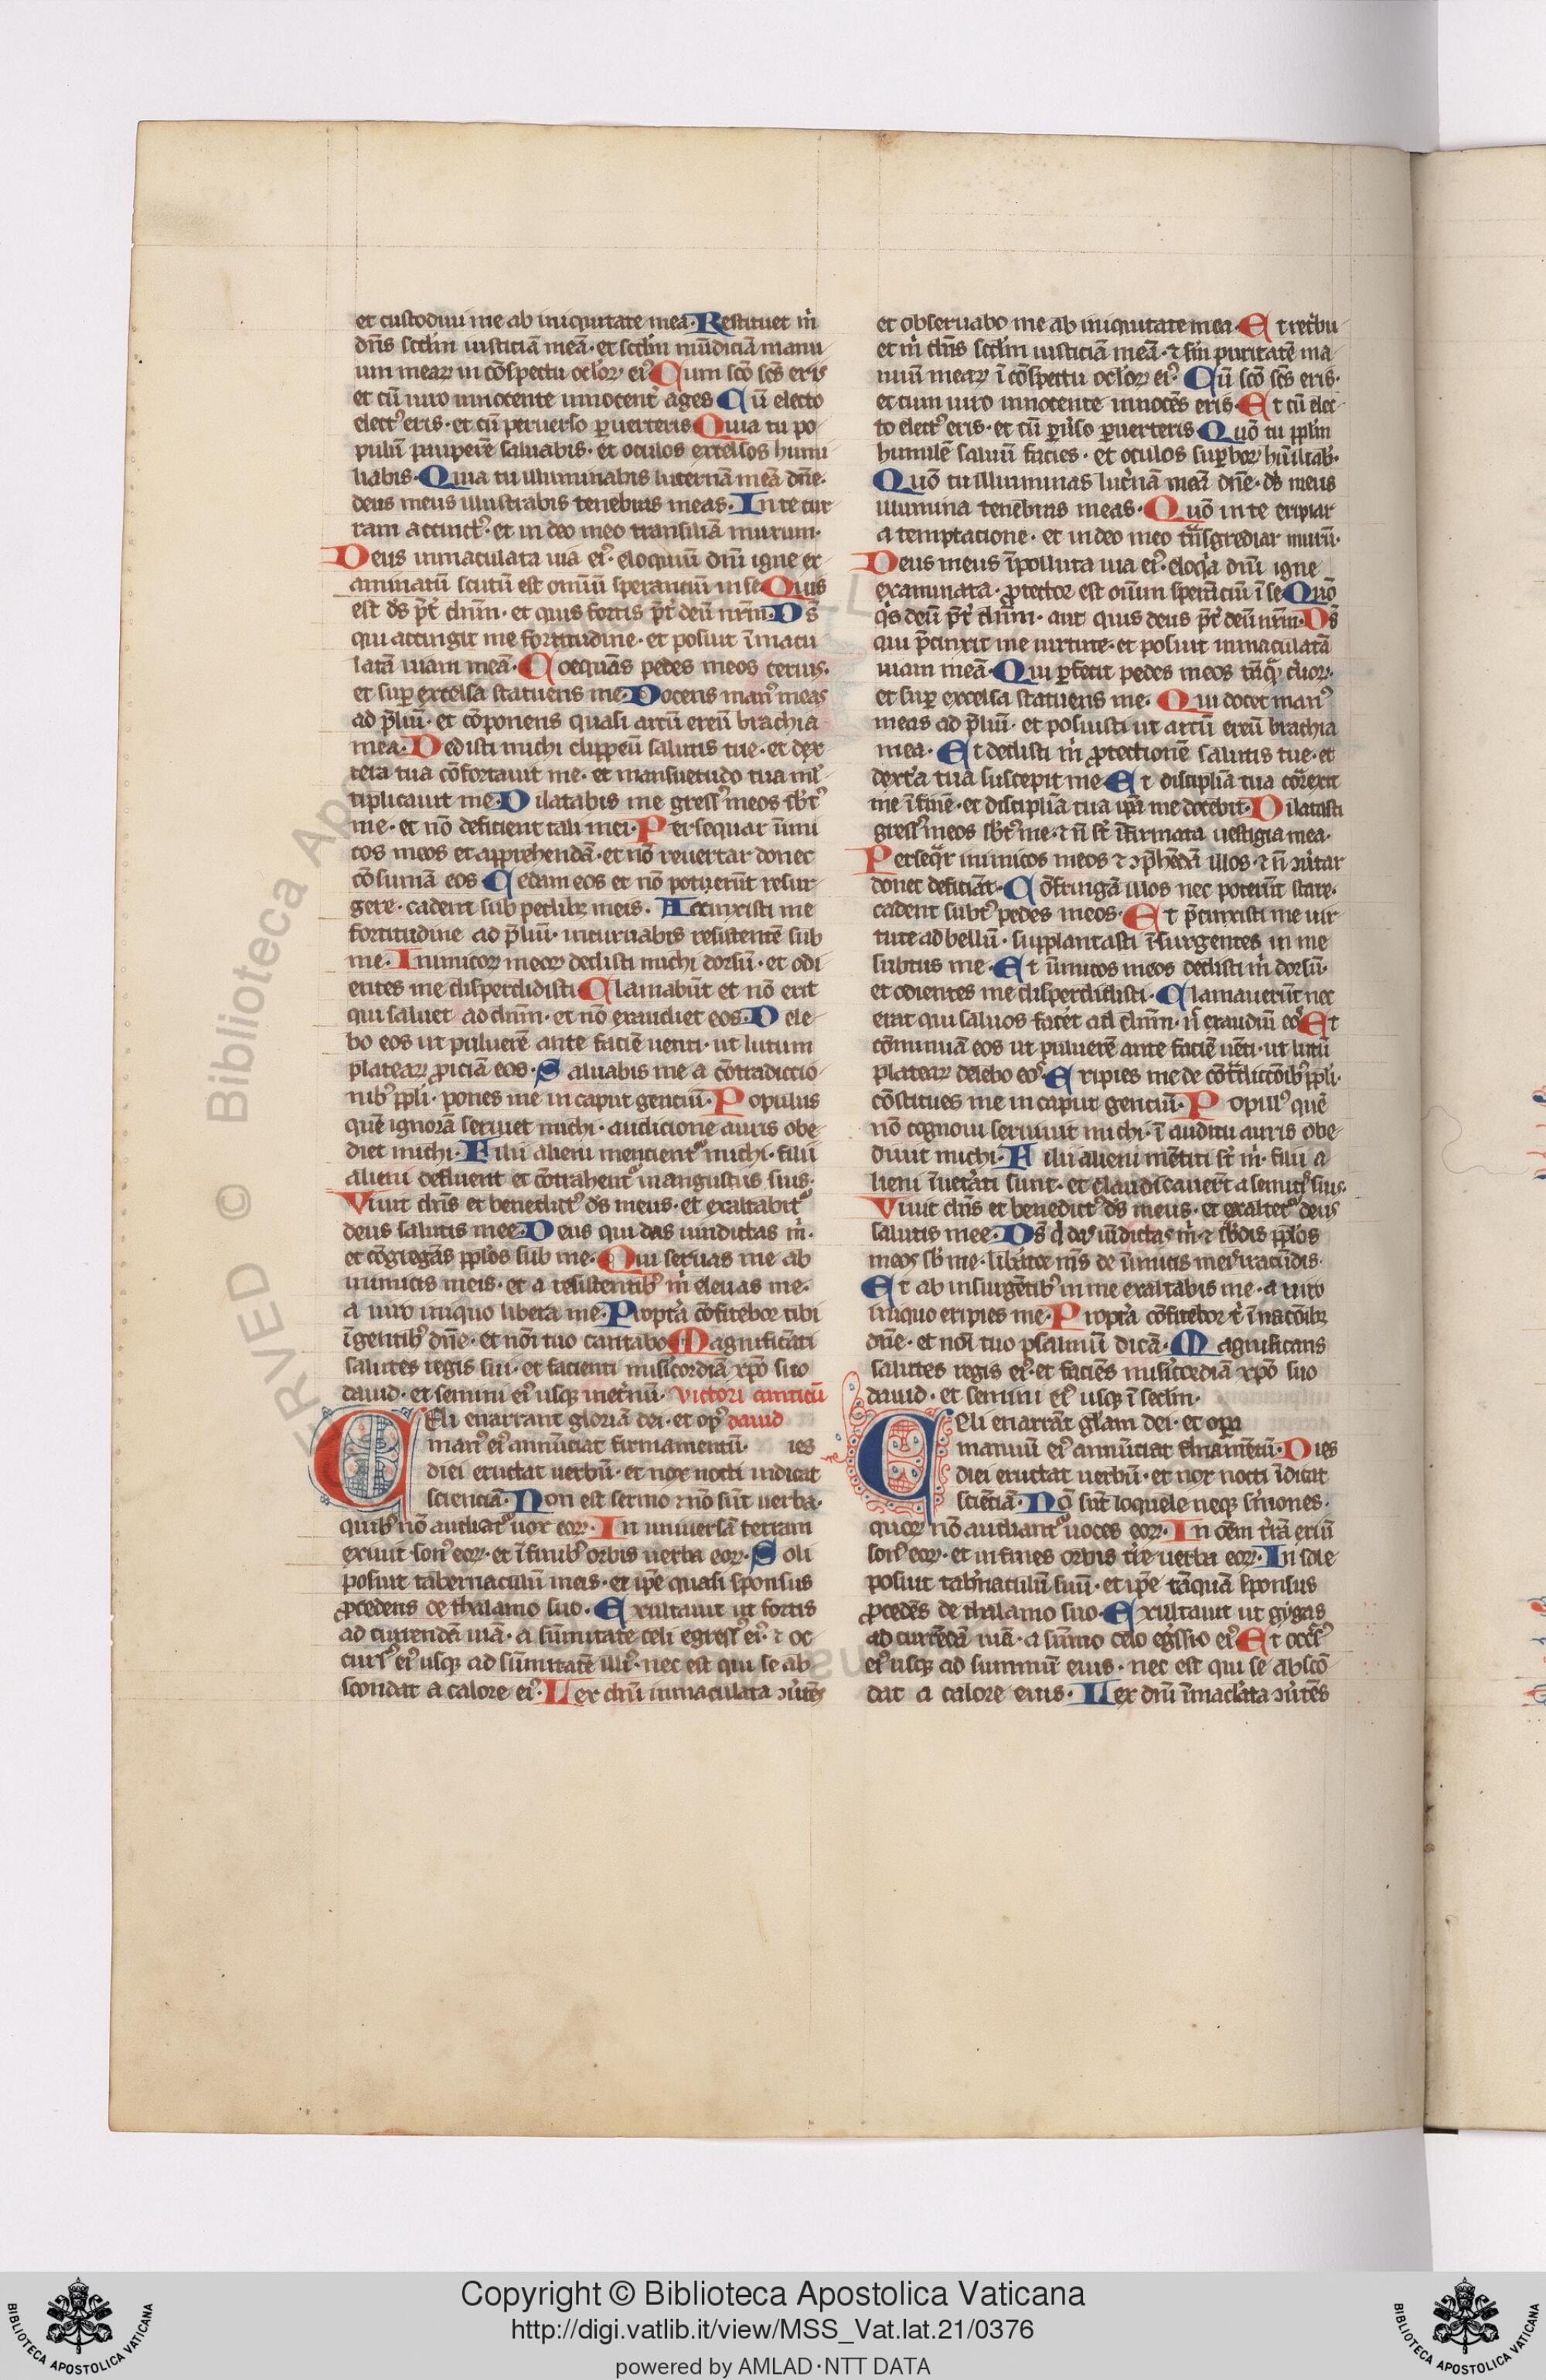 et custodiui me ab iniquitate mea· Restituet m̅
dn̅s scd̅m iusticia̅ mea̅· et scd̅m mu̅dicia̅ manu
um mearꝝ in co̅spectu oc̅lorꝝ ei⁹ Cum sc̅o sc̅s eris
et cu̅ uiro innocente innocent̅ ages Cu̅ electo
elect⁹ eris· et cu̅ peruerso ꝑuerteris Quia tu po
pulu̅ paupere̅ saluabis· et oculos excelsos humi
liabis· Quia tu illuminabis lucerna̅ mea̅ dn̅e·
deus meus illustrabis tenebras meas· In te cur
ram accinct⁹· et in deo meo transilia̅ murum·
Deus inmaculata uia ei⁹· eloquiu̅ dn̅i igne ex
aminatu̅ scutu̅ est om̅iu̅ speranciu̅ in se Quis
est d̅s p̅t̉ dn̅m· et quis fortis p̅t̉ deu̅ nr̅m· D̅s
qui accingit me fortitudine· et posuit i̅macu
lata̅ uiam mea̅· Coequa̅s pedes meos ceruis·
et suꝑ excelsa statuens me· Docens man⁹ meas
ad p̅liu̅· et co̅ponens quasi arcu̅ ereu̅ brachia
mea· Dedisti michi clippeu̅ salutis tue· et dex
tera tua co̅fortauit me· et mansuetudo tua ml̅
tiplicauit me· Dilatabis me gress⁹ meos sbt̉⁹
me· et no̅ deficient tali mei· Persequar i̅imi
cos meos et apprehenda̅· et no̅ reuertar donec
co̅suma̅ eos Cedam eos et no̅ poteru̅t resur
gere· cadent sub pedibꝫ meis· Accinxisti me
fortitudine ad p̅liu̅· incuruabis resistente̅ sub
me· Inimicorꝝ meorꝝ dedisti michi dorsu̅· et odi
entes me disperdidisti Clamabu̅t et no̅ erit
qui saluet ad dn̅m· et no̅ exaudiet eos· Dele
bo eos ut puluere̅ ante facie̅ uenti· ut lutum
platearꝝ ꝓicia̅ eos· Saluabis me a co̅tradiccio
nib⁹ pp̅li· pones me in caput genciu̅· Populus
que̅ ignora̅ seruiet michi· audicione auris obe
diet michi· Filii alieni mencient᷒ michi· filii
alieni defluent et co̅trahent᷒ in angustiis suis·
Viuit dn̅s et benedict⁹ d̅s meus· et exaltabit᷒
deus salutis mee· Deus qui das uindictas m̅·
et co̅grega̅s pp̅los sub me· Qui seruas me ab
inimicis meis· et a resistentib⁹ m̅ eleuas me·
a uiro iniquo libera me· Propt̉a co̅fitebor tibi
i̅ gentib⁹ dn̅e· et no̅i tuo cantabo Magnifica̅ti
salutes regis sui· et facienti mis̅icordia̅ xp̅o suo
dauid· et semini ei⁹ usqꝫ in et̉nu̅· Victori canticu̅
Celi enarrant gloria̅ dei· et op⁹ dauid
man⁹ ei⁹ annu̅ciat firmamentu̅· ies
diei eructat uerbu̅· et nox nocti indicat
sciencia̅· Non est sermo ⁊ no̅ su̅t uerba·
quib⁹ no̅ audiat᷒ uox eorꝝ· In uniuersa̅ terram
exiuit son⁹ eorꝝ· et i̅ finib⁹ orbis uerba eorꝝ· Soli
posuit tabernaculu̅ in eis· et ip̅e quasi sponsus
ꝓcedens de thalamo suo· Exultauit ut fortis
ad currenda̅ uia̅· a su̅mitate celi egress⁹ ei⁹· ⁊ oc
curs⁹ ei⁹ usqꝫ ad su̅mitate̅ illi⁹· nec est qui se ab
scondat a calore ei⁹· Lex dn̅i inmaculata ꝯu̅te̅s
et obseruabo me ab iniquitate mea· Et ret̉bu
et m̅ dn̅s scd̅m iusticia̅ mea̅· ⁊ s̅m puritate̅ ma
nuu̅ mearꝝ i̅ co̅spectu oc̅lorꝝ ei⁹· Cu̅ sc̅o sc̅s eris·
et cum uiro innocente innoce̅s eris· Et cu̅ elec
to elect⁹ eris· et cu̅ ꝑu̅so ꝑuerteris Quo̅ tu pp̅lm
humile̅ saluu̅ facies· et oculos suꝑborꝝ hu̅iliab̅·
Quo̅ tu illuminas luc̉na̅ mea̅ dn̅e· d̅s meus
illumina tenebras meas· Quo̅ in te eripiar
a temptacione· et in deo meo tra̅sgrediar muru̅·
Deus meus i̅polluta uia ei⁹· eloq̅a dn̅i igne
examinata· ꝓtector est oi̅um spera̅ciu̅ i̅ se Quo̅
q̅s deu̅ p̅t̉ dn̅m· aut quis deus p̅t̉ deu̅ nr̅m· D̅s
qui p̅cinxit me uirtute· et posuit inmaculata̅
uiam mea̅· Qui ꝑfecit pedes meos ta̅qꝫ ceruorꝝ·
et suꝑ excelsa statuens me· Qui docet man⁹
meas ad p̅liu̅· et posuisti ut arcu̅ ereu̅ brachia
mea· Et dedisti m̅ ꝓtectione̅ salutis tue· et
dext̉a tua suscepit me Et disciplia̅ tua corexit
me i̅ fine̅· et disciplia̅ tua ip̅a me docebit· Dilatasti
gress⁹ meos sbt̉⁹ me· ⁊ n̅ st̅ i̅firmata uestigia mea·
Perseq̅r inimicos meos ⁊ ꝯp̅he̅da̅ illos· ⁊ n̅ ꝯu̅tar
donec deficia̅t· Co̅fringa̅ illos nec poteru̅t stare·
cadent subt⁹ pedes meos· Et p̅cinxisti me uir
tute ad bellu̅· supplantasti i̅surgentes in me
subtus me· Et i̅imicos meos dedisti m̅ dorsu̅·
et odientes me disperdidisti· Clamaueru̅t nec
erat qui saluos facet̉ ad dn̅m· n̅ exaudiu̅ eo⁹ Et
co̅minua̅ eos ut puluere̅ ante facie̅ ue̅ti· ut lutu̅
platearꝝ delebo eo⁹· Eripies me de co̅tradicco̅ib⁹ pp̅li·
co̅stitues me in caput genciu̅· Popul⁹ que̅
no̅ cognoui seruiuit michi· i̅ auditu auris obe
diuit michi· Filii alieni me̅titi st̅ m̅· filii a
lieni i̅uet̉ati sunt· et claudicauer̅t a semit⁹ suis·
Viuit dn̅s et benedict⁹ d̅s meus· et exaltet᷒ deus
salutis mee· D̅s q̅ das ui̅dictas m̅ ⁊ sb̅dis pp̅los
meos sb̅ me· lib̅ator m̅s de i̅imicis mei⁹ iracu̅dis·
Et ab insurge̅tib⁹ in me exaltabis me· a uiro
iniquo eripies me· Propt̉a co̅fitebor t̅ i̅ naco̅ibꝫ
dn̅e· et no̅i tuo psalmu̅ dica̅· Magnificans
salutes regis ei⁹· et facie̅s mis̅icordia̅ xp̅o suo
dauid· et semini ei⁹ usqꝫ i̅ sec̅lm·
Celi enarra̅t gl̅am dei· et oꝑa
manuu̅ ei⁹ annu̅ciat firmame̅tu̅· Dies
diei eructat uerbu̅· et nox nocti i̅dicat
scie̅cia̅· No̅ su̅t loquele neqꝫ sm̅ones·
quorꝝ no̅ audiant᷒ uoces eorꝝ· In oe̅m t̉ra̅ exiu̅
son⁹ eorꝝ· et in fines orbis t̉re uerba eorꝝ· In sole
posuit tab̅naculu̅ suu̅· et ip̅e ta̅qua̅ sponsus
ꝓcede̅s de thalamo suo· Exultauit ut gygas
ad curre̅da̅ uia̅· a su̅mo celo eg̅ssio ei⁹ Et occ̅s⁹
ei⁹ usqꝫ ad summu̅ eius· nec est qui se absco̅
dat a calore eius· Lex dn̅i i̅mac̅lata ꝯu̅te̅s
Copyright © Biblioteca Apostolica Vaticana
http://digi.vatlib.it/view/MSS_Vat.lat.21/0376
powered by AMLAD·NTT DATA
BIBLIOTECA APOSTOLICA VATICANA
BIBLIOTECA APOSTOLICA VATICANA
RVED © Biblioteca Apo